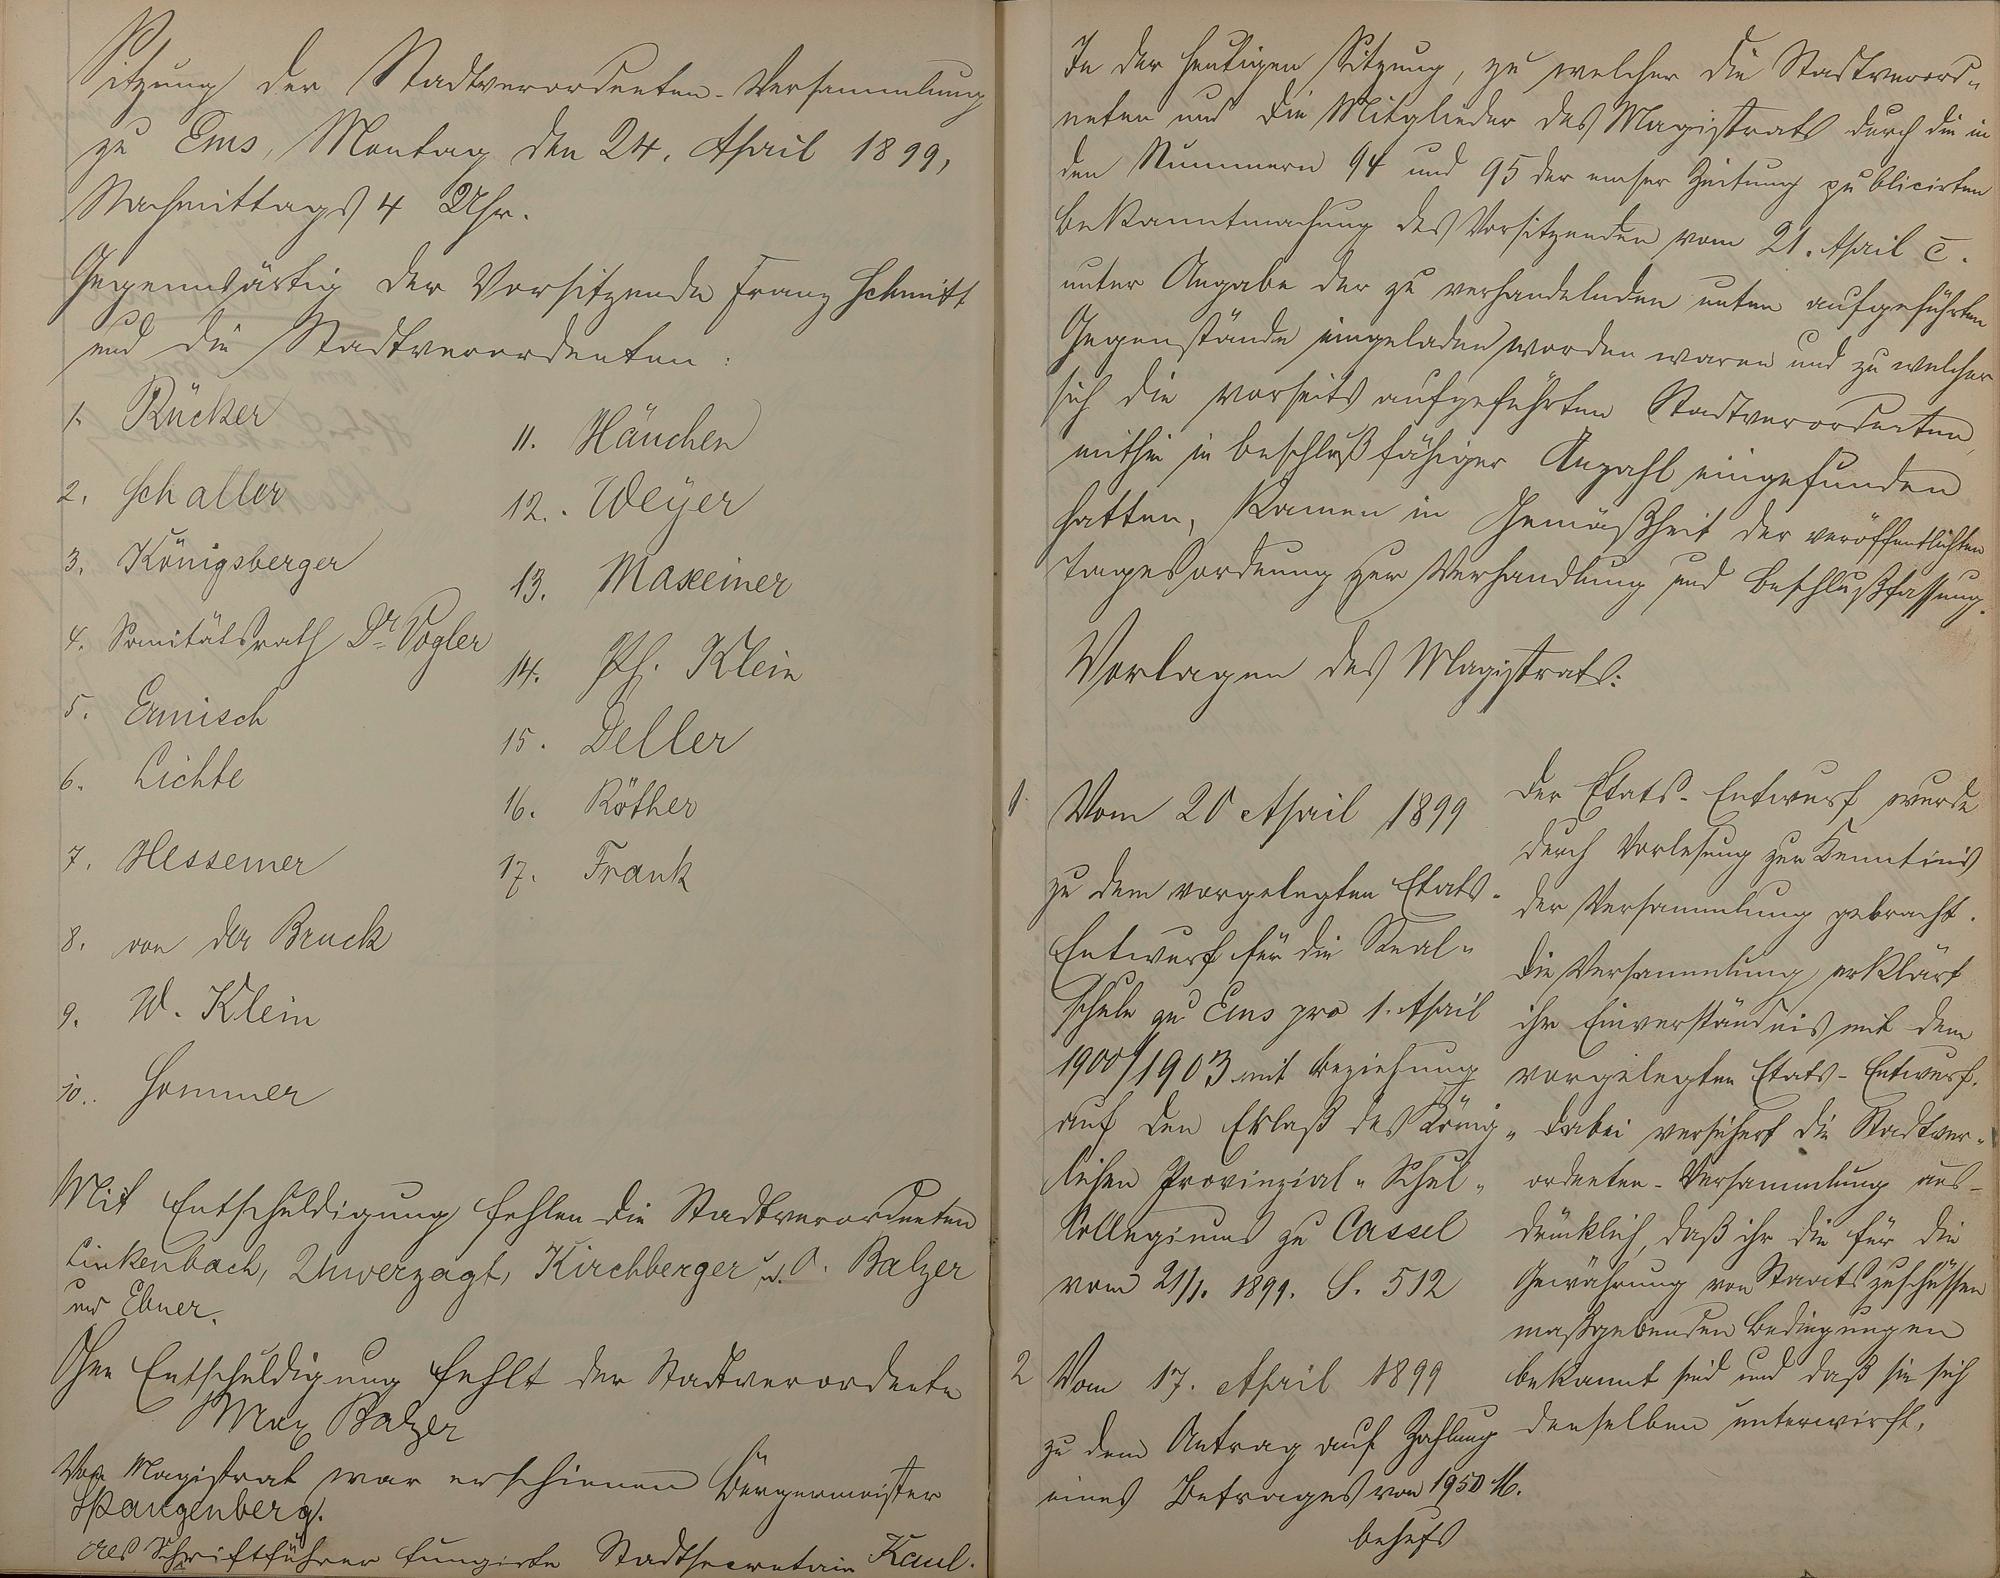 Sitzung der Stadtverordneten-Versammlung
zu Ems, Montag den 24. April 1899,
Nachmittags 4 Uhr.
Gegenwärtig der Vorsitzende Franz Schmitt
und die Stadtverordneten:
1. Rücker
2. Schaller
3. Königsberger
4. Sanitätsrath Dr. Vogler
5. Ermisch
6. Lichte
7. Hessemer
8. von der Bruck
9. W. Klein
10. Sommer
11. Häuchen
12. Weyer
13. Maxeiner
14. Ph. Klein
15. Deller
16. Röther
17. Frank
Mit Entschuldigung fehlen die Stadtverordneten
Linkenbach, Unverzagt, Kirchberger u. O. Balzer
und Ebner.
Ohne Entschuldigung fehlt der Stadtverordnete
Max Balzer
Vom Magistrat war erschienen Bürgermeister
Spangenberg.
Als Schriftführer fungirte Stadtsecretair Kaul.
In der heutigen Sitzung, zu welcher die Stadtverord-
neten und die Mitglieder des Magistrats durch die in
den Nummern 94 und 95 der emser Zeitung publicirten
Bekanntmachung des Vorsitzenden vom 21. April c.
unter Angabe der zu verhandelnden unten aufgeführten
Gegenstände eingeladen worden waren und zu welcher
sich die vorseits aufgeführten Stadtverordneten,
mithin in beschlußfähiger Anzahl eingefunden
hatten, kamen in Gemäßheit der veröffentlichten
Tagesordnung zur Verhandlung und Beschlußfassung.
Vorlagen des Magistrats:
1. Vom 20 April 1899
zu dem vorgelegten Etats-
Entwurf für die Real-
schule zu Ems pro 1. April
1900/1903 mit Beziehung
auf den Erlaß des König-
lichen Provinzial-Schul-
Collegiums zu Cassel
vom 21/1. 1899. S. 512
Der Etats-Entwurf wurde
durch Vorlesung zur Kenntnis
der Versammlung gebracht.
Die Versammlung erklärt
ihr Einverständnis mit dem
vorgelegten Etats-Entwurf.
Dabei versichert die Stadtver-
ordneten-Versammlung aus-
drücklich, daß ihr die für die
Gewährung von Staatszuschüssen
maßgebenden Bedingungen
bekannt sind und daß sie sich
denselben unterwirft.
2 Vom 17. April 1899
zu dem Antrag auf Zahlung
eines Betrages von 1950 M.
behufs